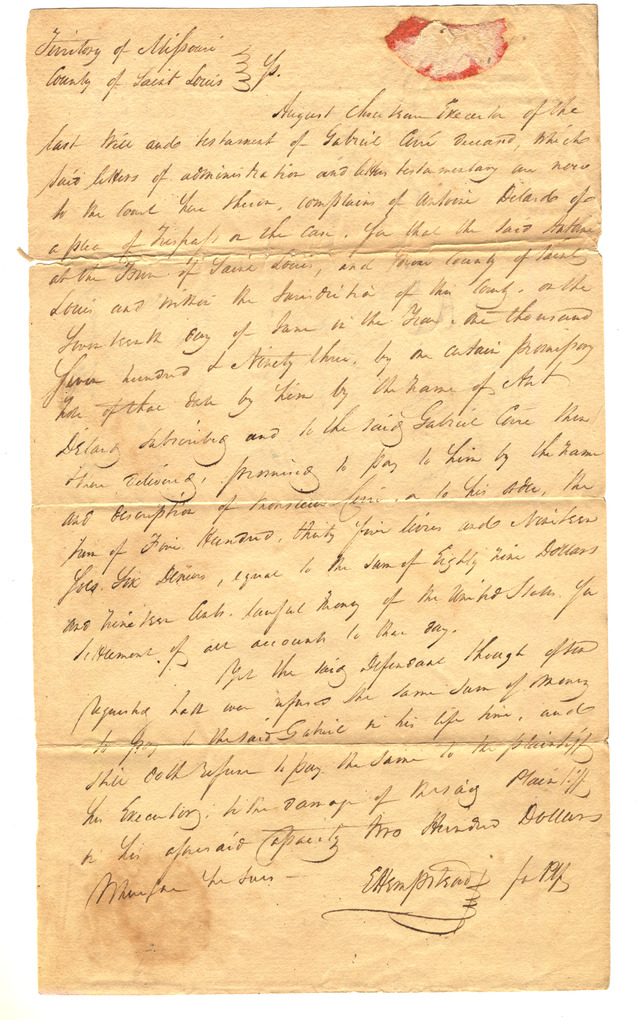 Territory of Missouri
County of Saint Louis } Ss.
August Chouteau Executor of the
last will and testament of Gabriel Cerré deceased, which
said letters of administration and letters testamentary are now
to the Court here shewn, complains of Antoine Delard of
a plea of Trespass on the case. For that the said Antoine
at the Town of Saint Louis, and County of Saint
Louis and within the Jurisdiction of this Court, on the
Seventeenth day of June in the Year one thousand
Seven hundred & Ninety three, by one certain promissory
Note of that date by him by the name of Ant
Delard subscribed and to the said Gabriel Cerre then
there delivered, promised to pay to him by the name
and description of Monsieur Cerre, or to his order, the
sum of Five Hundred, thirty five livres and Nineteen
Sols Six Deniers, equal to the sum of Eighty Nine Dollars
and Nineteen Cents lawful money of the United States. For
settlement of all accounts to that day.
Yet the said Defendant though often
requested hath ever refused the same sum of money
to pay to the said Gabriel in his life time, and
still doth refuse to pay the same to the plaintiff
his Executor; to the damage of the said Plaintiff
in his aforesaid Capacity two Hundred Dollars
Wherefore he sues —
E Hempstead for Plf